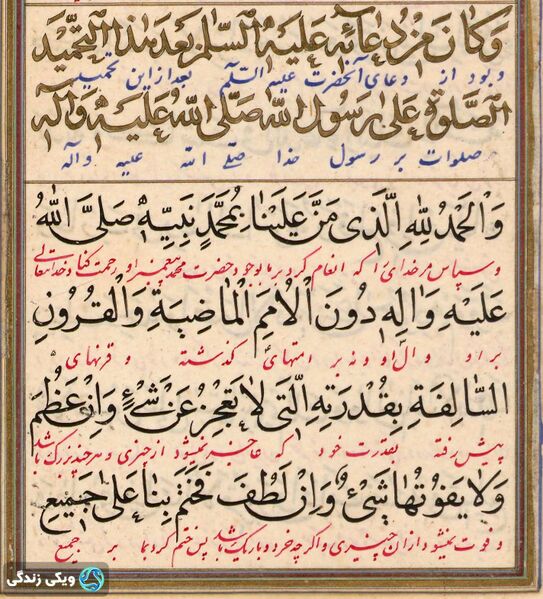 وَكَانَ مِنْ دُعَائِهِ عَلَيْهِ السَّلَامُ بَعْدَ هٰذَا التَّحْمِيدِ
و بود از دعای آنحضرت علیه السّلام بعد از این تحمید
الصَّلٰوةُ عَلىٰ رَسُولِ اللّٰهِ صَلَّى اللّٰهُ عَلَيْهِ وَآلِهِ
صلوات بر رسول خدا صلّی الله علیه و آله
وَالْحَمْدُ لِلّٰهِ الَّذِى مَنَّ عَلَيْنَا بِمُحَمَّدٍ نَبِيِّهِ صَلَّى اللّٰهُ
و سپاس مر خدای را که انعام کرد بر ما بوجود حضرت محمد پیغمبر او رحمت کناد خدایتعالی
عَلَيْهِ وَاٰلِهِ دُونَ الْاُمَمِ الْمَاضِيَةِ وَالْقُرُونِ
بر او و آل او نه بر امتهای گذشته و قرنهای
السَّالِفَةِ بِقُدْرَتِهِ الَّتِى لَا تَعْجِزُ عَنْ شَىْءٍ وَاِنْ عَظُمَ
پیش رفته بقدرت خود که عاجز نمیشود از چیزی و هر چند بزرگ باشد
وَلَا يَفُوتُهَا شَىْءٌ وَاِنْ لَطُفَ فَخَتَمَ بِنَا عَلىٰ جَمِيعِ
و فوت نمیشود از آن چیزی و اگر چه خرد و باریک باشد پس ختم کرد بما بر جمیع
ویکی زندگی